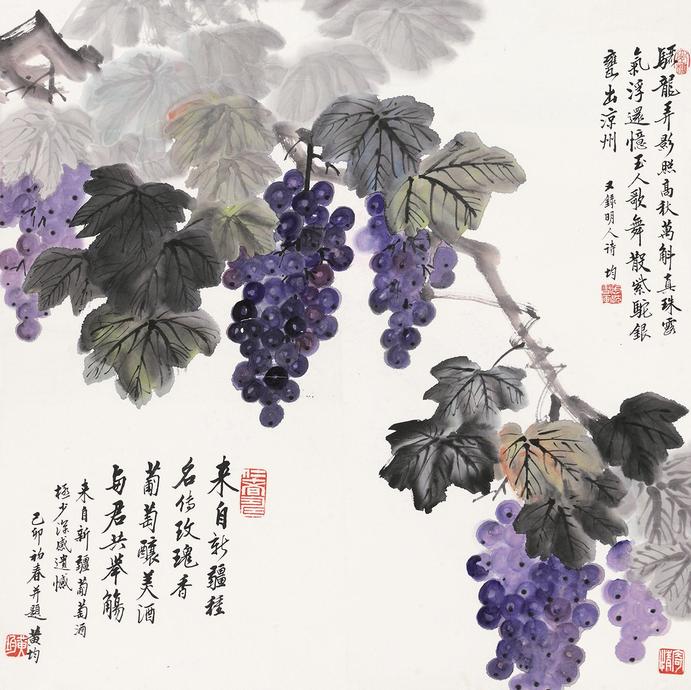 驪龍弄影照高秋萬斛真珠露
氣浮還憶玉人歌舞散紫駝銀
甕出涼州
又錄明人诗 均
来自新疆種
名传玫瑰香
葡萄釀美酒
与君共舉觴
来自新疆葡萄酒
极少深感遗憾
己卯初春并題 黄均